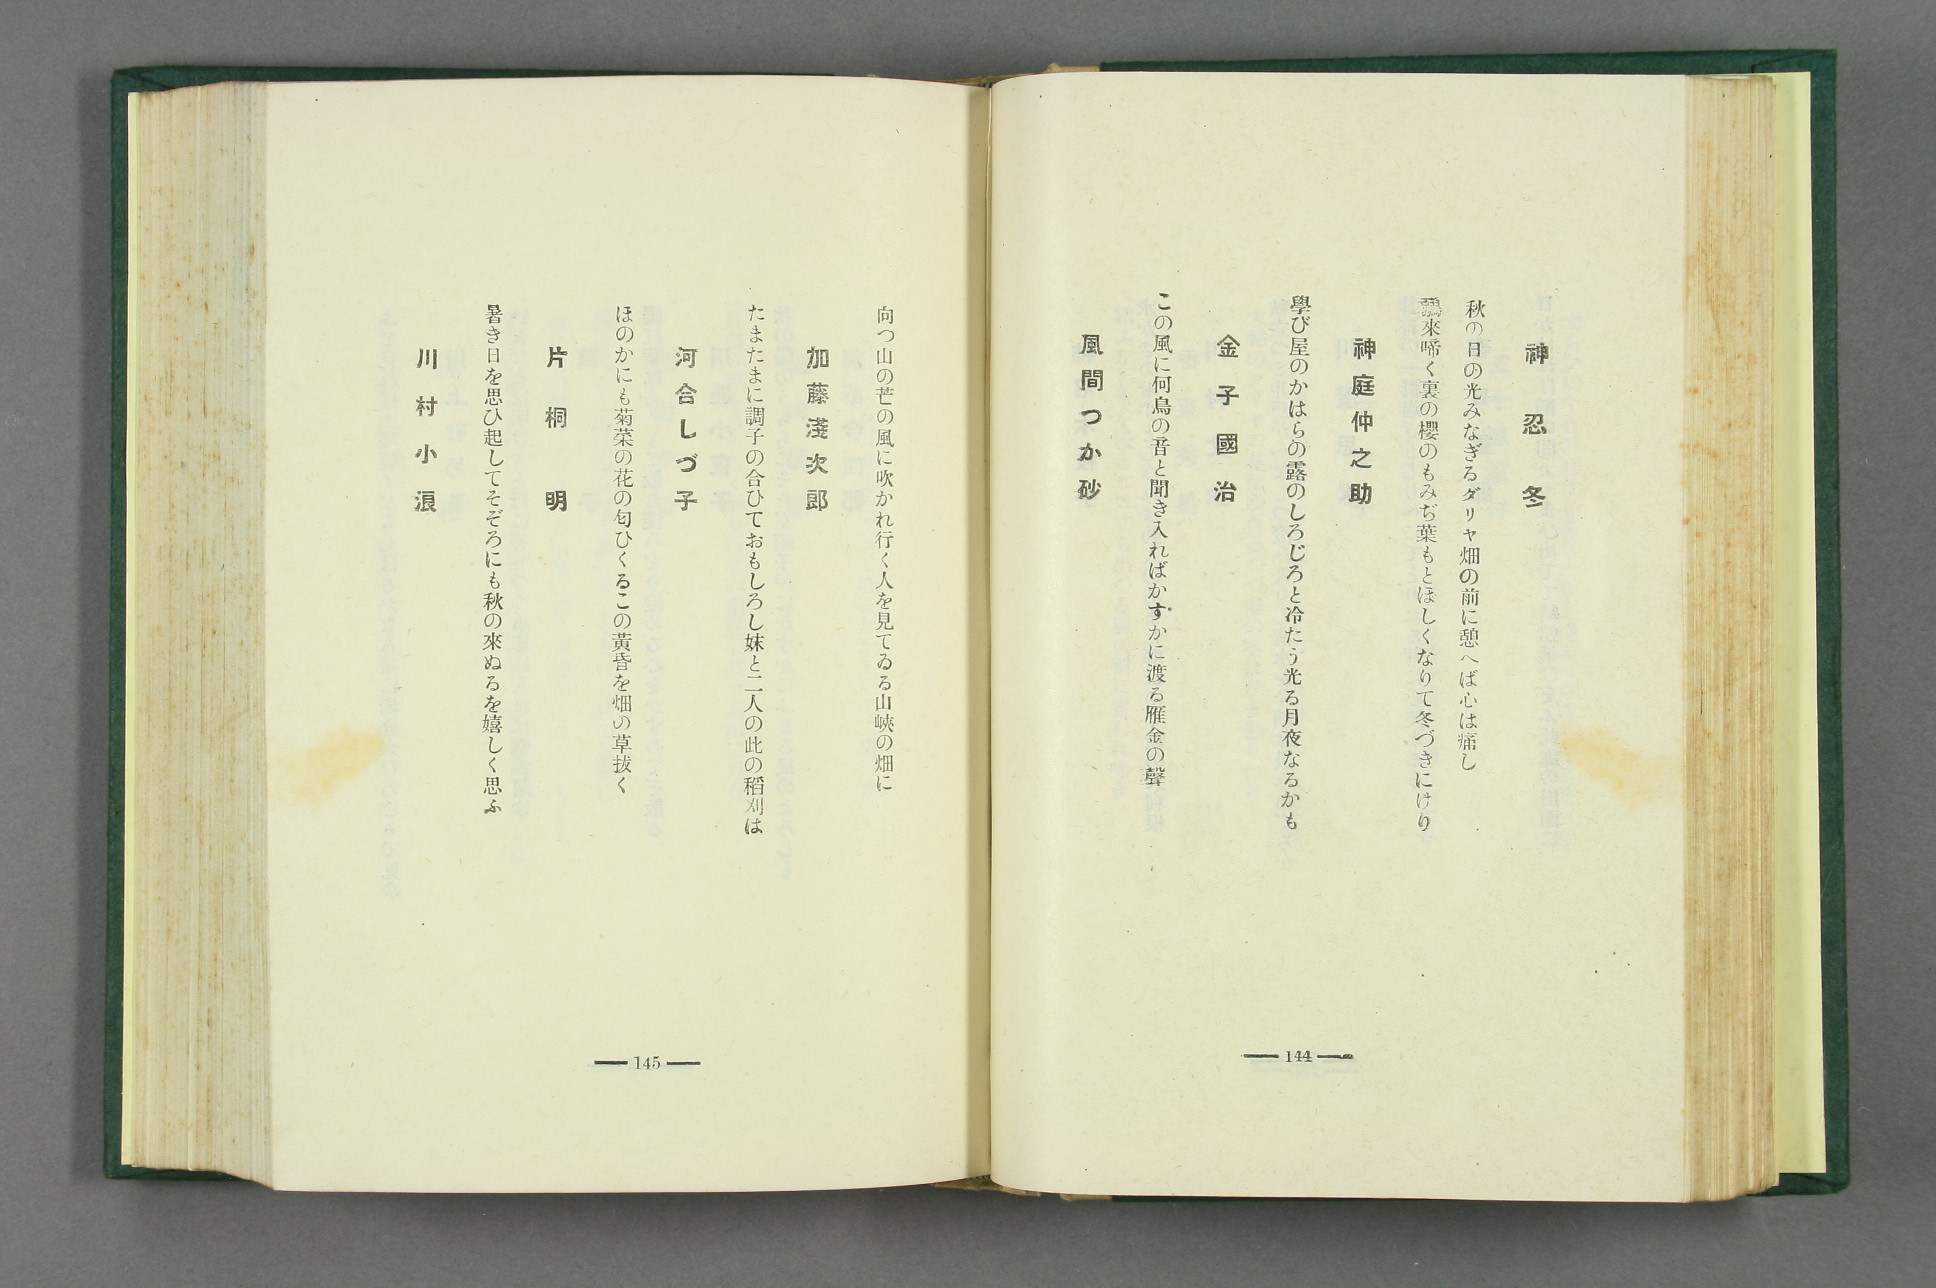 神忍冬
秋の日の光みなぎるダリヤ畑の前に憩へば心は痛し
鵞來啼く裏の櫻のもみぢ葉もとぼしくなりて冬づきにけり
神庭仲之助
學び屋のかはらの露のしろじろと冷たう光る月夜なるかも
金子國治
この風に何鳥の音と聞き入ればかすかに渡る雁金の聲
風間つか砂
— 144 —
向つ山の芒の風に吹かれ行く人を見てゐる山峽の畑に
加藤淺次郎
たまたまに調子の合ひておもしろし妹と二人の此の稻刈は
河合しづ子
ほのかにも菊菜の花の匂ひくるこの黃昏を畑の草拔く
片桐明
暑き日を思ひ起してそぞろにも秋の來ぬるを嬉しく思ふ
川村小浪
— 145 —